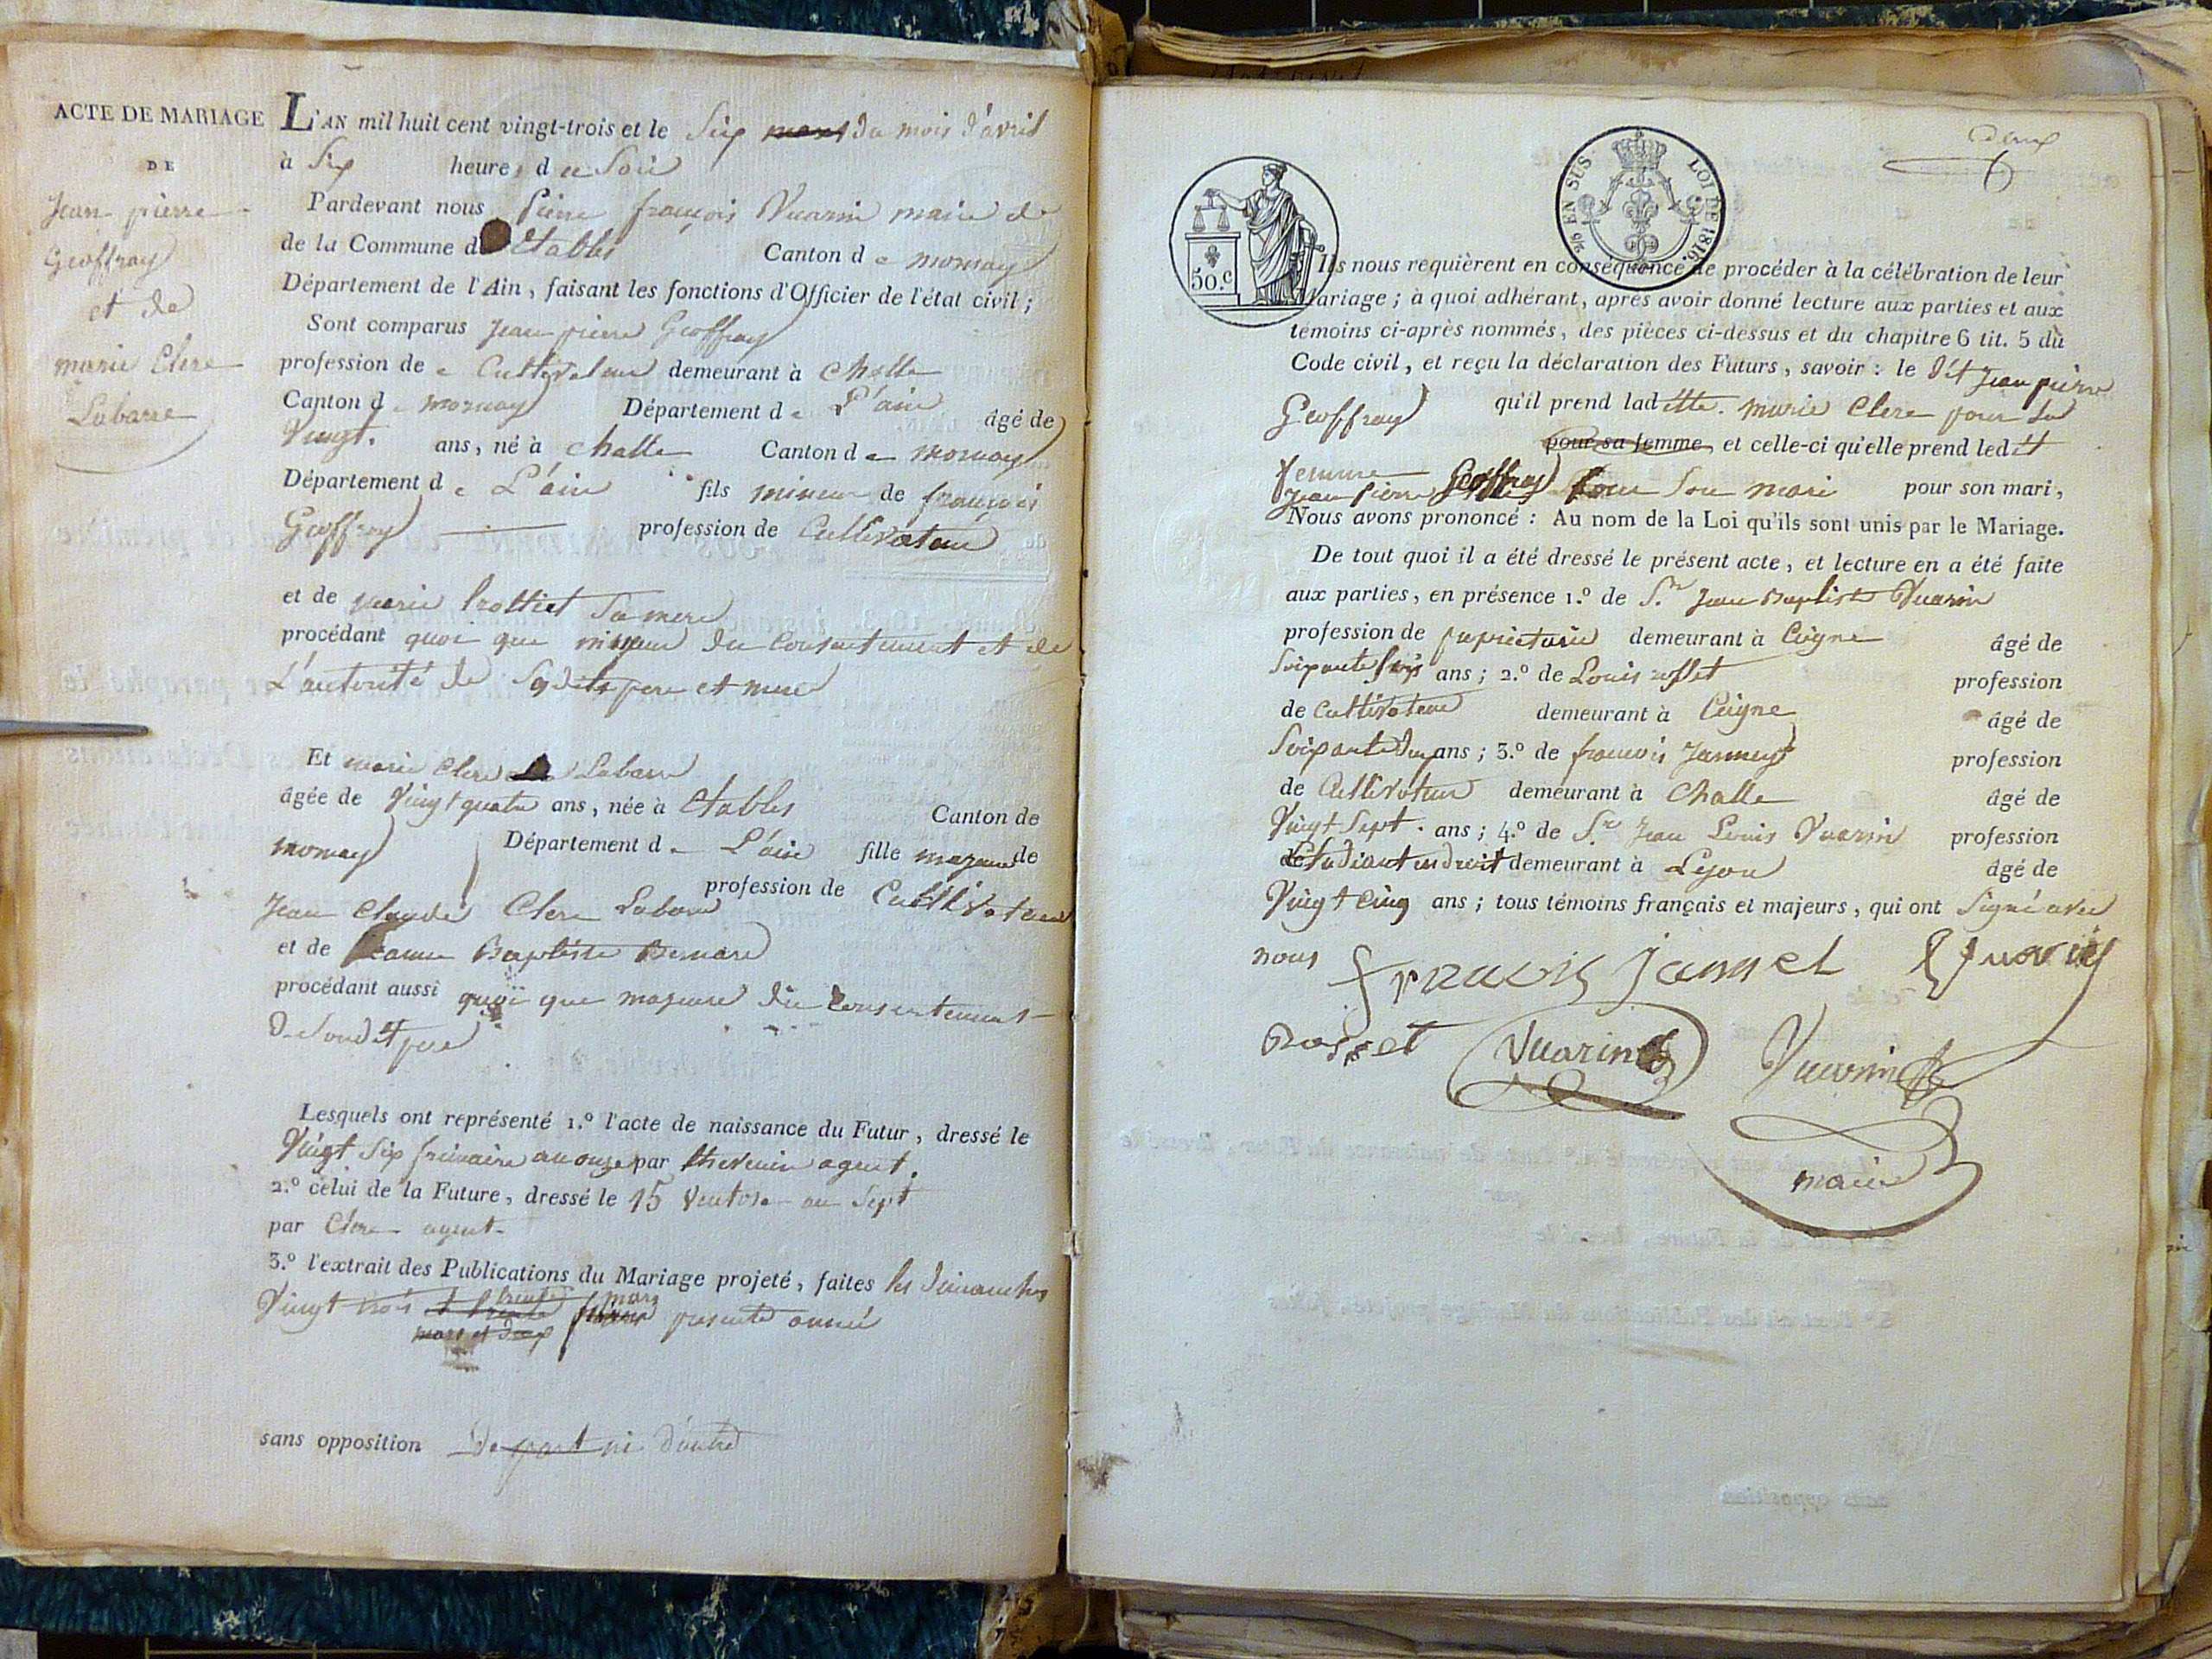 ACTE DE MARIAGE
DE
Jean pierre
Geoffray
et de
marie Clere
Labarre
L'AN mil huit cent vingt-trois et le Six mars du mois d'avril
à Six heures du Soir
Pardevant nous Pierre françois Vuarin maire de
de la Commune d Etables Canton de mornay
Département de l'Ain, faisant les fonctions d'Officier de l'état civil;
Sont comparus Jean pierre Geoffray
profession de Cultivateur demeurant à Challe
Canton de mornay Département de L'ain âgé de
Vingt ans, né à Challe Canton de mornay
Département de L'ain fils mineur de françois
Geoffray profession de Cultivateur
et de marie trottiet Sa mere
procédant quoi que mineur du Consentement et de
L'autorité de Sesdits pere et mere
Et marie Clere Labarre
âgée de Vingt quatre ans, née à Etables Canton de
mornay Département de L'ain fille majeure de
Jean Claude Clere Labarre profession de Cultivateur
et de Jeanne Baptiste Bernard
procédant aussi quoi que majeure du Consentement
De Sondit pere
Lesquels ont représenté 1.º l'acte de naissance du Futur, dressé le
Vingt Six frimaire an onze par thevenin agent.
2.º celui de la Future, dressé le 15 Ventose an Sept
par Clere agent
3.º l'extrait des Publications du Mariage projeté, faites les dimanches
trente mars
Vingt trois et trente presente année
mars et
sans opposition De part ni d'autre
deux
EN SUS LOI DE 1816.
50.c
Ils nous requièrent en conséquence de procéder à la célébration de leur
Mariage; à quoi adhérant, après avoir donné lecture aux parties et aux
témoins ci-après nommés, des pièces ci-dessus et du chapitre 6 tit. 5 du
Code civil, et reçu la déclaration des Futurs, savoir: le dit Jean pierre
Geoffray qu'il prend laditte marie Clere pour Sa
pour sa femme, et celle-ci qu'elle prend ledit
femme
Jean Pierre Geoffray pour Son mari pour son mari,
Nous avons prononcé: Au nom de la Loi qu'ils sont unis par le Mariage.
De tout quoi il a été dressé le présent acte, et lecture en a été faite
aux parties, en présence 1.º de S.r Jean Baptiste Vuarin
profession de propriétaire demeurant à Ceigne âgé de
Soixante ans; 2.º de Louis rosset profession
de Cultivateur demeurant à Ceigne âgé de
Soixante ans; 3.º de francois Jannet profession
de Cultivateur demeurant à Challe âgé de
Vingt Sept ans; 4.º de S.r Jean Louis Vuarin profession
d'Etudiant en droit demeurant à Lyon âgé de
Vingt Cinq ans; tous témoins français et majeurs, qui ont Signé avec
nous francois jannet
Rosset Vuarin Vuarin
maire